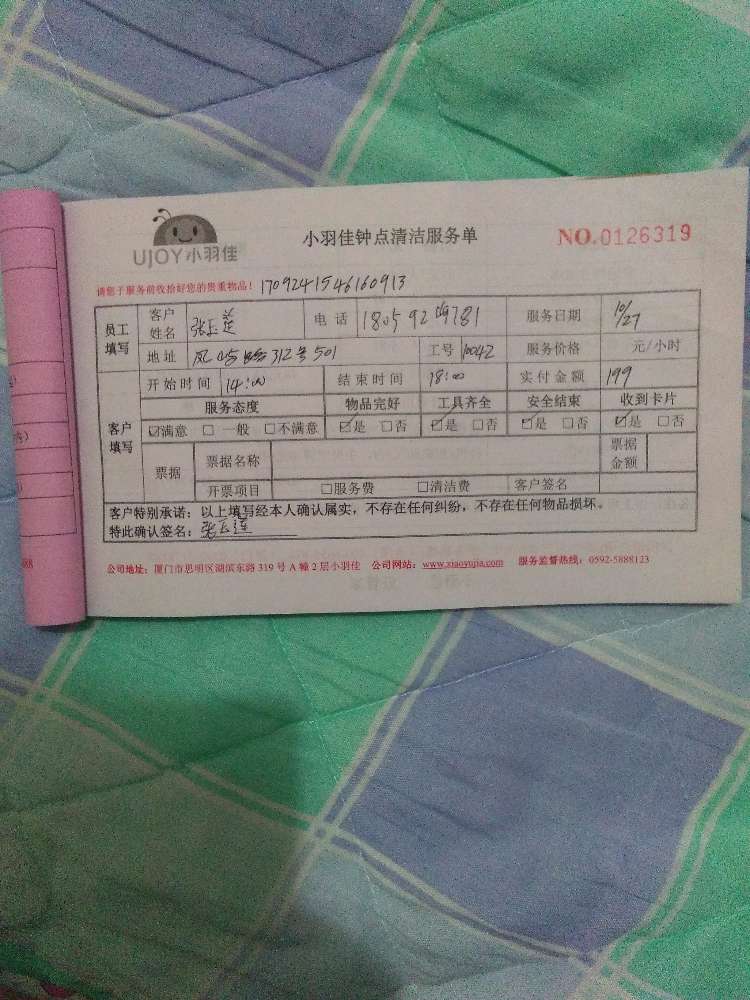 UJOY小羽佳
小羽佳钟点清洁服务单
NO.0126319
请您于服务前收拾好您的贵重物品！ 1709241546160913
员工填写 客户姓名 张玉莲 电话 服务日期 10/27
地址 312号501 工号 10042 服务价格 元/小时
客户填写 开始时间 14:00 结束时间 18:00 实付金额 199
服务态度 物品完好 工具齐全 安全结束 收到卡片
☑满意 □一般 □不满意 ☑是 □否 ☑是 □否 ☑是 □否 ☑是 □否
票据 票据名称 票据金额
开票项目 □服务费 □清洁费 客户签名
客户特别承诺：以上填写经本人确认属实，不存在任何纠纷，不存在任何物品损坏。
特此确认签名：张玉莲
公司地址：厦门市思明区湖滨东路319号A幢2层小羽佳 公司网站：www.xiaoyujia.com 服务监督热线：0592-5888123